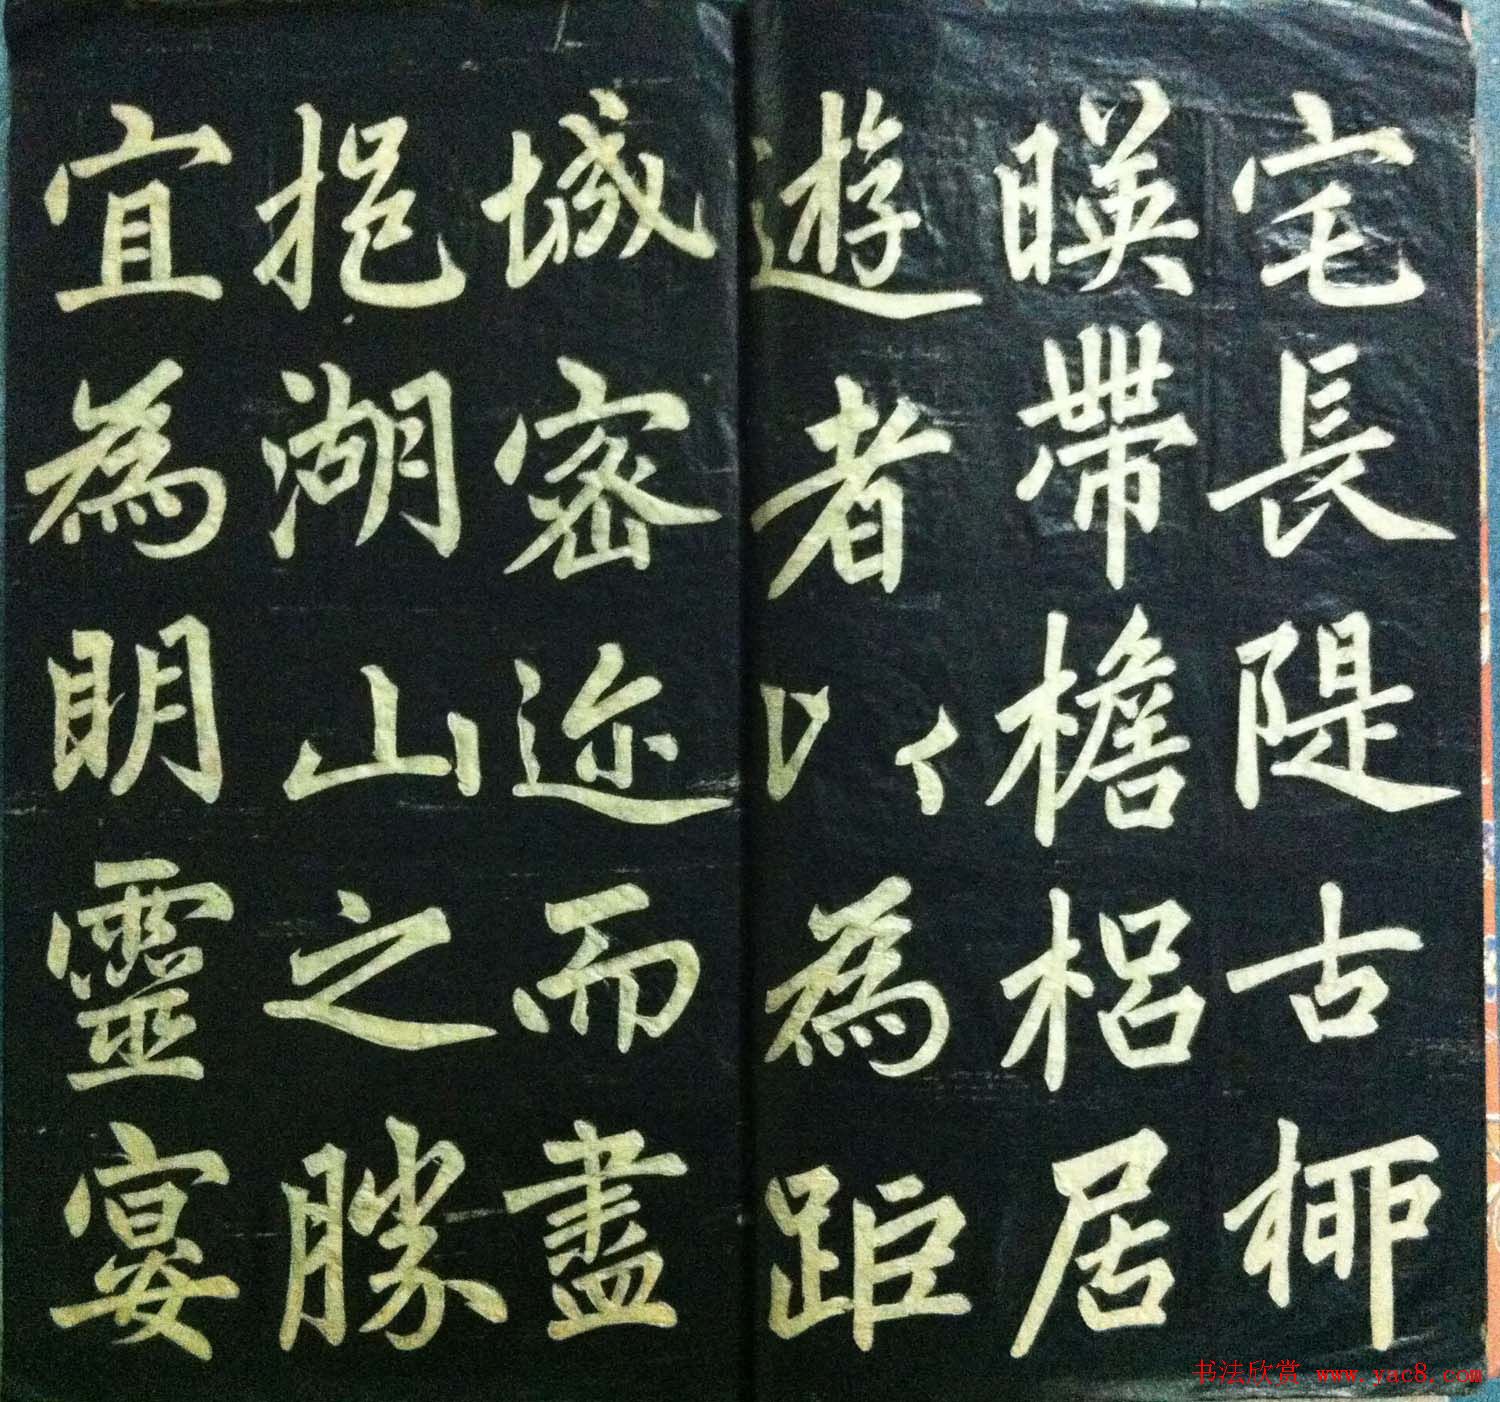 宅長隄古柳
暎帶檐梠居
遊者以為距
城密迩而盡
挹湖山之勝
宜為明靈宴
书法欣赏 www.yac8.com